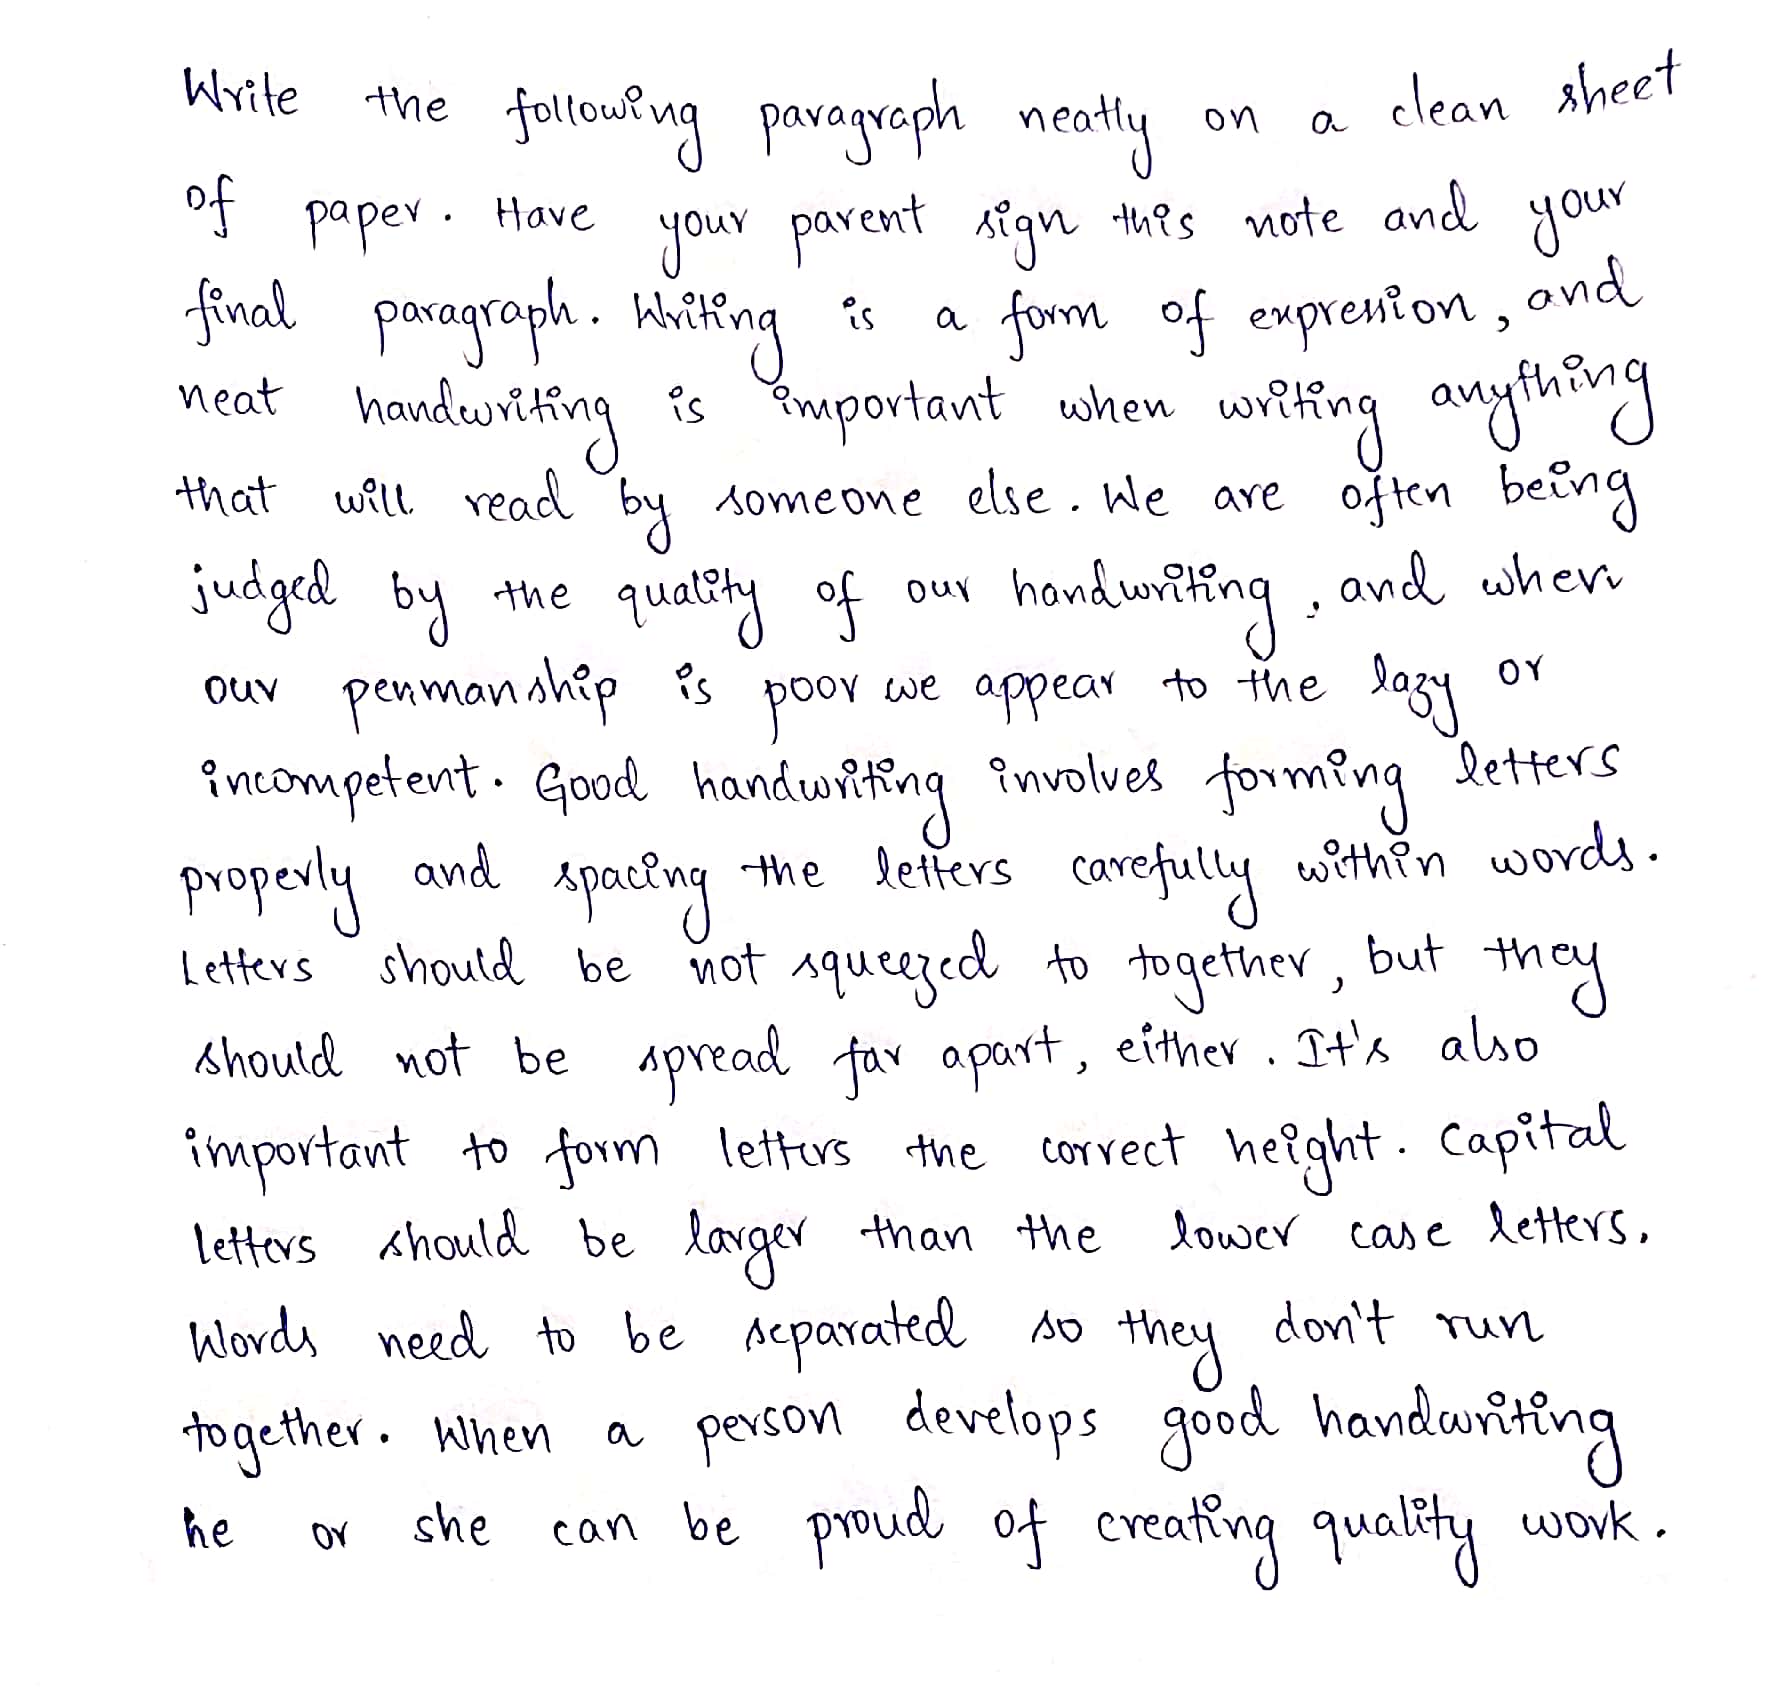 Write the following paragraph neatly on a clean sheet
of paper. Have your parent sign this note and your
final paragraph. Writing is a form of expression, and
neat handwriting is important when writing anything
that will read by someone else. We are often being
judged by the quality of our handwriting, and when
our penmanship is poor we appear to the lazy or
incompetent. Good handwriting involves forming letters
properly and spacing the letters carefully within words.
Letters should be not squeezed to together, but they
should not be spread far apart, either. It's also
important to form letters the correct height. Capital
letters should be larger than the lower case letters.
Words need to be separated so they don't run
together. When a person develops good handwriting
he or she can be proud of creating quality work.